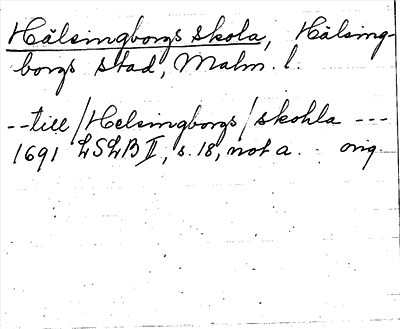 Hälsingborgs skola, Hälsing-
borgs stad, Malm. l.
--till/Helsingborgs/skohla ---
1691 LSLB II, s. 18, not a. orig.